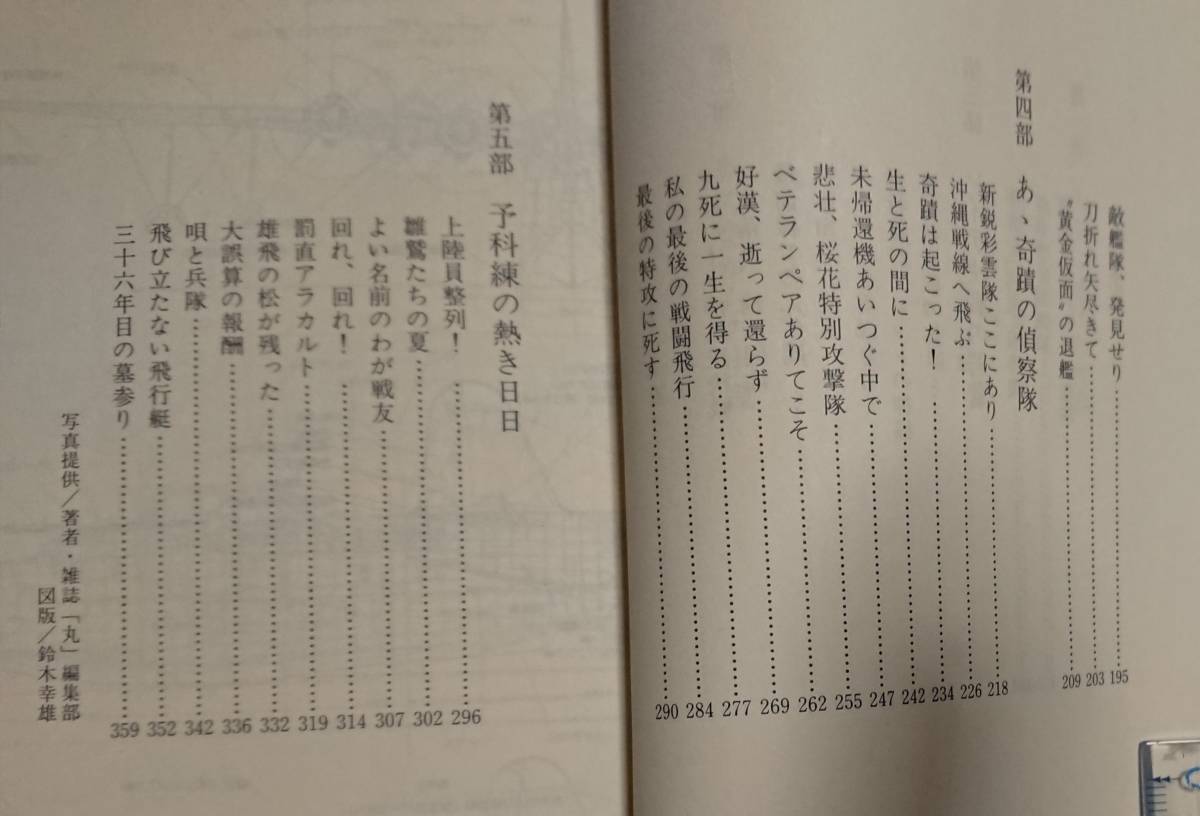 敵艦隊、発見せり……………195
刀折れ矢尽きて……………203
〝黄金仮面〟の退艦……………209
第四部 あゝ奇蹟の偵察隊
新鋭彩雲隊ここにあり……………218
沖縄戦線へ飛ぶ……………226
奇蹟は起こった!……………234
生と死の間に……………242
未帰還機あいつぐ中で……………247
悲壮、桜花特別攻撃隊……………255
ベテランペアありてこそ……………262
好漢、逝って還らず……………269
九死に一生を得る……………277
私の最後の戦闘飛行……………284
最後の特攻に死す……………290
第五部 予科練の熱き日日
上陸員整列!……………296
雛鷲たちの夏……………302
よい名前のわが戦友……………307
回れ、回れ!……………314
罰直アラカルト……………319
雄飛の松が残った……………332
大誤算の報酬……………336
唄と兵隊……………342
飛び立たない飛行艇……………352
三十六年目の墓参り……………359
写真提供/著者・雑誌「丸」編集部
図版/鈴木幸雄